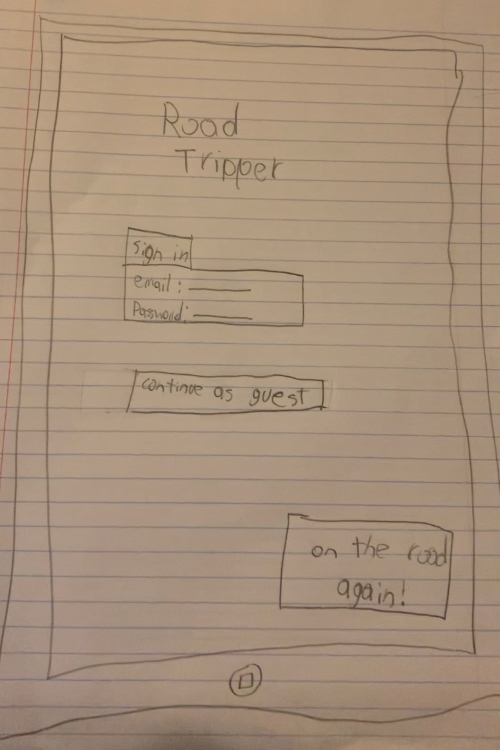 Road
Tripper
sign in
email:
Password:
continue as guest
on the road
again!